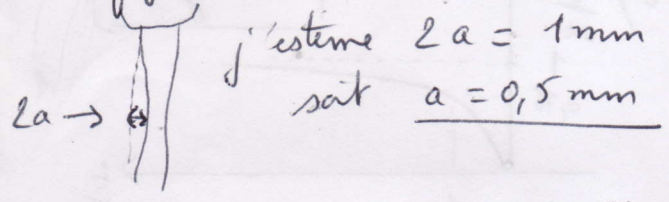 j'estime 2a = 1mm
soit a = 0,5mm
2a →